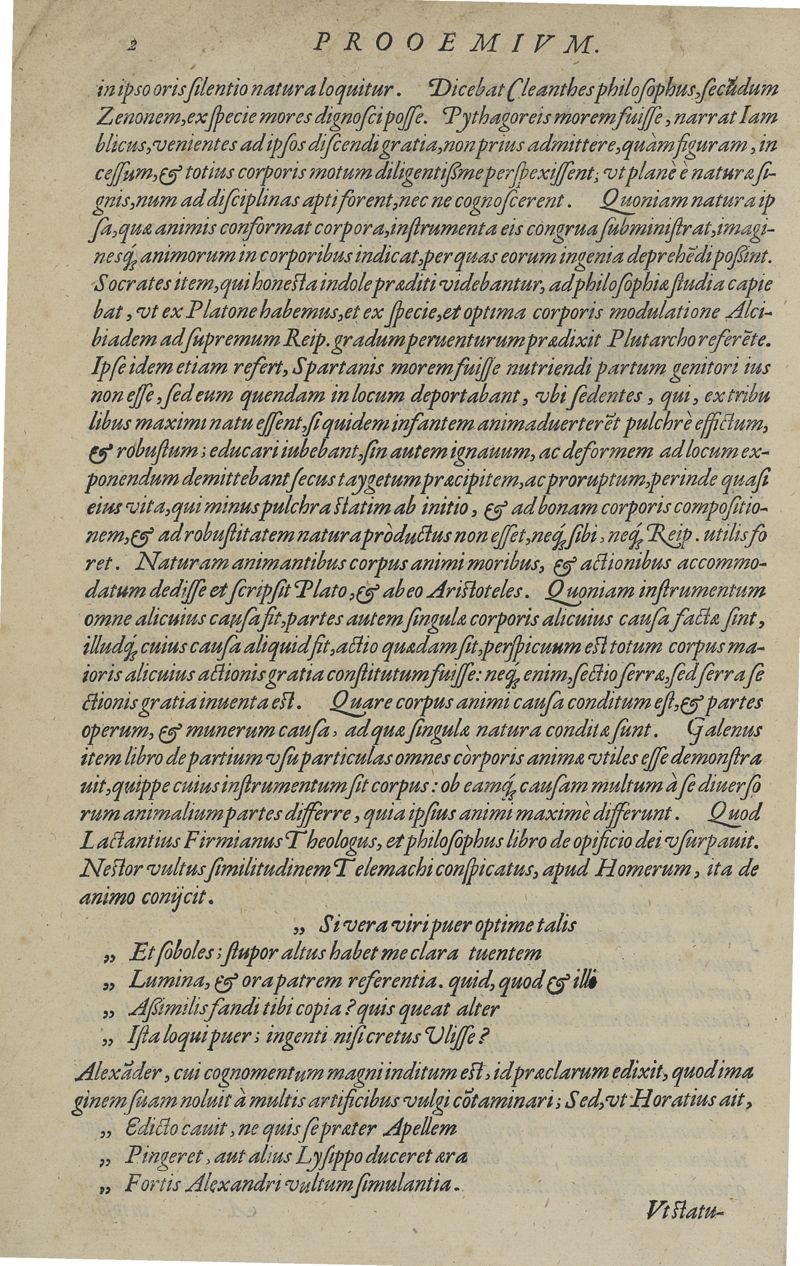 2 PROOEMIVM.
in ipso oris silentio natura loquitur. Dicebat Cleanthes philosophus, secũdum
Zenonem, ex specie mores dignosci posse. Pythagoreis morem fuisse, narrat Iam
blicus, venientes ad ipsos discendi gratia, non prius admittere, quàm figuram, in
cessum, & totius corporis motum diligentissme perspexissent; vt planè è naturæ si-
gnis, num ad disciplinas apti forent, nec ne cognoscerent. Quoniam natura ip
sa, quæ animis conformat corpora, instrumenta eis congrua subministrat, imagi-
nesq́; animorum in corporibus indicat, per quas eorum ingenia deprehẽdi possint.
Socrates item, qui honesta indole præditi videbantur, ad philosophiæ studia capie
bat, vt ex Platone habemus, et ex specie, et optima corporis modulatione Alci-
biadem ad supremum Reip. gradum peruenturum prædixit Plutarcho referẽte.
Ipse idem etiam refert, Spartanis morem fuisse nutriendi partum genitori ius
non esse, sed eum quendam in locum deportabant, vbi sedentes, qui, ex tribu
libus maximi natu essent, si quidem infantem animaduerterẽt pulchrè effictum,
& robustum; educari iubebant, sin autem ignauum, ac deformem ad locum ex-
ponendum demittebant secus taygetum præcipitem, ac proruptum, perinde quasi
eius vita, qui minus pulchra statim ab initio, & ad bonam corporis compositio-
nem, & ad robustitatem natura pròductus non esset, neq́; sibi, neq́; Reip. utilis fo
ret. Naturam animantibus corpus animi moribus, & actionibus accommo-
datum dedisse et scripsit Plato, & ab eo Aristoteles. Quoniam instrumentum
omne alicuius causa fit, partes autem singulæ corporis alicuius causa factæ sint,
illudq́; cuius causa aliquid fit, actio quædam sit, perspicuum est totum corpus ma-
ioris alicuius actionis gratia constitutum fuisse: neq́; enim, sectio serræ, sed serra se
ctionis gratia inuenta est. Quare corpus animi causa conditum est, & partes
operum, & munerum causa, ad quæ singulæ natura conditæ sunt. Galenus
item libro de partium vsu particulas omnes còrporis animæ vtiles esse demonstra
uit, quippe cuius instrumentum sit corpus: ob eamq́; causam multum à se diuerso
rum animalium partes differre, quia ipsius animi maximè differunt. Quod
Lactantius Firmianus Theologus, et philosophus libro de opificio dei vsurpauit.
Nestor vultus similitudinem Telemachi conspicatus, apud Homerum, ita de
animo conijcit.
„ Si vera viri puer optime talis
„ Et soboles; stupor altus habet me clara tuentem
„ Lumina, & ora patrem referentia. quid, quod & illi
„ Assimilis fandi tibi copia? quis queat alter
„ Ista loqui puer; ingenti nisi cretus Vlisse?
Alexãder, cui cognomentum magni inditum est, id præclarum edixit, quod ima
ginem suam noluit à multis artificibus vulgi cõtaminari; Sed, vt Horatius ait,
„ Edicto cauit, ne quis se præter Apellem
„ Pingeret, aut alius Lysippo duceret æra
„ Fortis Alexandri vultum simulantia.
Vt statu-